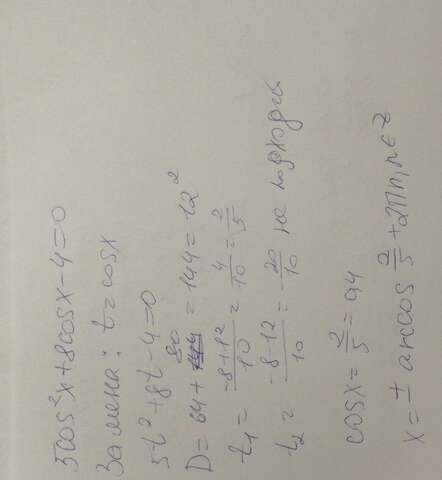 5cos²x+8cosx-4=0
Замена: t=cosx
5t²+8t-4=0
D=64+80=144=12²
t₁=(-8+12)/10=4/10=2/5
t₂=(-8-12)/10=-20/10 не подходит
cosx=2/5=0,4
x=± arccos 2/5+2πn, n∈Z